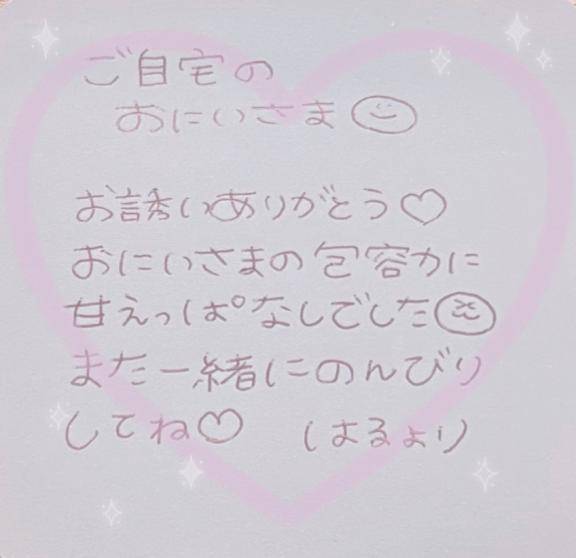 ご自宅の
おにいさま
お誘いありがとう♡
おにいさまの包容力に
甘えっぱなしでした
また一緒にのんびり
してね♡ はるより